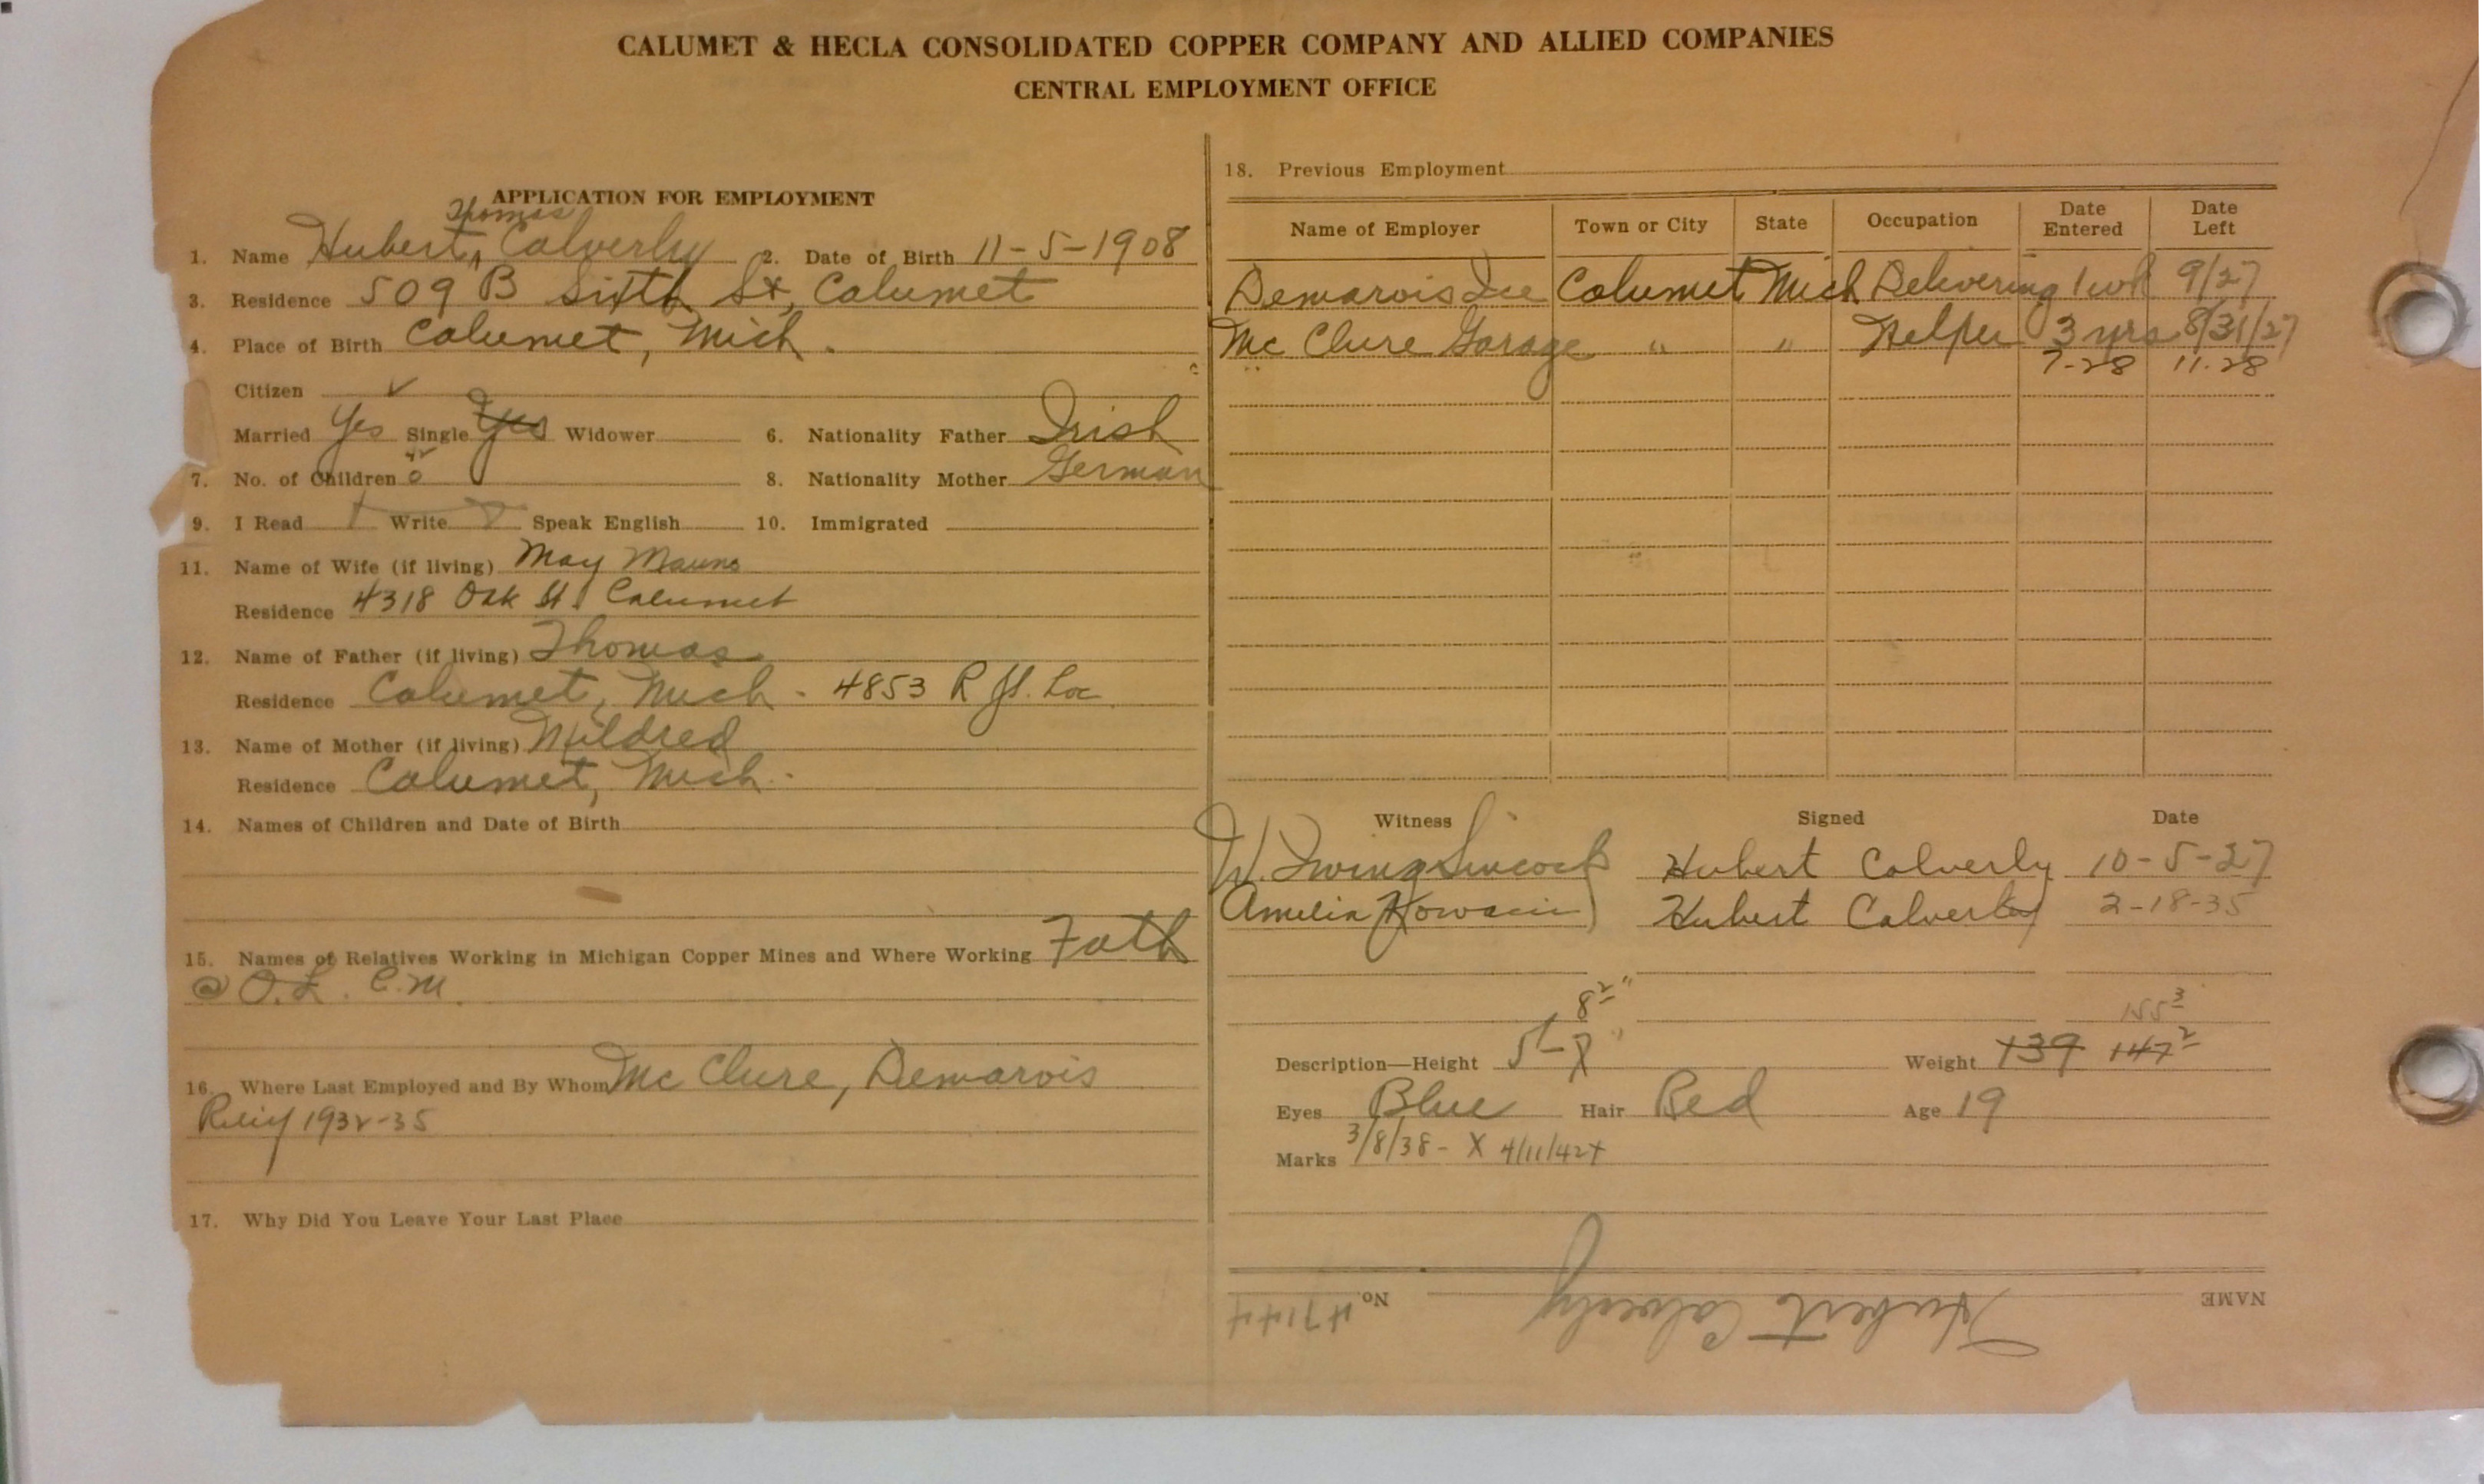 CALUMET & HECLA CONSOLIDATED COPPER COMPANY AND ALLIED COMPANIES
CENTRAL EMPLOYMENT OFFICE
APPLICATION FOR EMPLOYMENT
Thomas
1. Name Hubert ^ Calverly 2. Date of Birth 11-5-1908
3. Residence 509 B Sixth St, Calumet
4. Place of Birth Calumet, Mich.
Citizen ✓
Married Yes Single Yes Widower 6. Nationality Father Irish
7. No. of Children 0 8. Nationality Mother German
9. I Read Write Speak English 10. Immigrated
11. Name of Wife (if living) May
Residence 4318 Oak St. Calumet
12. Name of Father (if living) Thomas
Residence Calumet, Mich - 4853 R St. Loc.
13. Name of Mother (if living) Mildred
Residence Calumet, Mich.
14. Names of Children and Date of Birth
15. Names of Relatives Working in Michigan Copper Mines and Where Working Fath
@ O.L. C.M.
16. Where Last Employed and By Whom Mc Clure, Demarois
Relief 1932-35
17. Why Did You Leave Your Last Place
18. Previous Employment
Name of Employer Town or City State Occupation Date Entered Date Left
Demarois Ice Calumet Mich Delivering 1 wk 9/27
Mc Clure Garage " " Helper 3 yrs 8/31/27
7-28 11-28
Witness Signed Date
W. Irving Hubert Calverly 10-5-27
Amelia Hubert Calverley 2-18-35
8 2"
155 3
Description—Height 5'- Weight 139 147 2
Eyes Blue Hair Red Age 19
Marks 3/8/38 - X 4/11/42 X
NAME Hubert Calverly No. 47144